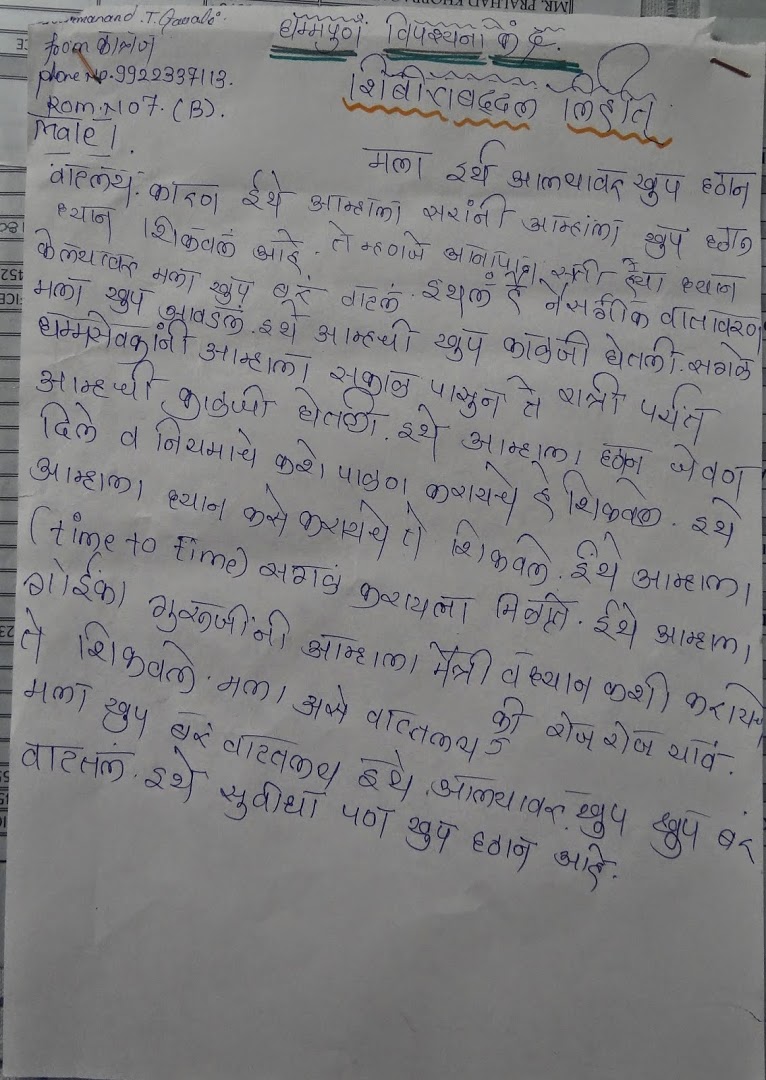 manand.T.Gavale.
from कालन
phone no. 9922337113.
Rom.NO 7. (B).
male |
धम्मपुणे विपश्यना केंद्र.
शिबीराबद्दल लिहीत
मला इथे आल्यावर खुप छान
वाटलय. कारण ईथे आम्हाला सरांनी आम्हांला खुप छान
ध्यान शिकवलं आहे. ते म्हणजे ह्या ध्यान
केल्यावर मला खुप बरं वाटलं. इथलं हे नैसर्गीक वातावरण
मला खुप आवडलं. इथे आम्हची खुप काळजी घेतली. सगळे
धम्मसेवकांनी आम्हाला सकाळ पासुन ते रात्री पर्यंत
आम्हची काळजी घेतली. इथे आम्हाला छान जेवण
दिले व नियमाचे कशे पाळण करायचे हे शिकवले. इथे
आम्हाला ध्यान कसे करायचे ते शिकवले. ईथे आम्हाला
(time to time) सगळं करायला मिळते. ईथे आम्हाला
गोईंका गुरूजींनी आम्हाला मैत्री व ध्यान कशी करायिचे
ते शिकवले. मला असे वाटतलय की रोज रोज यावं.
मला खुप बरं वाटतलय इथे आल्यावर. खुप खुप बरं
वाटतलं. इथे सुवीधा पण खुप छान आहे.
MR. PRALHAD